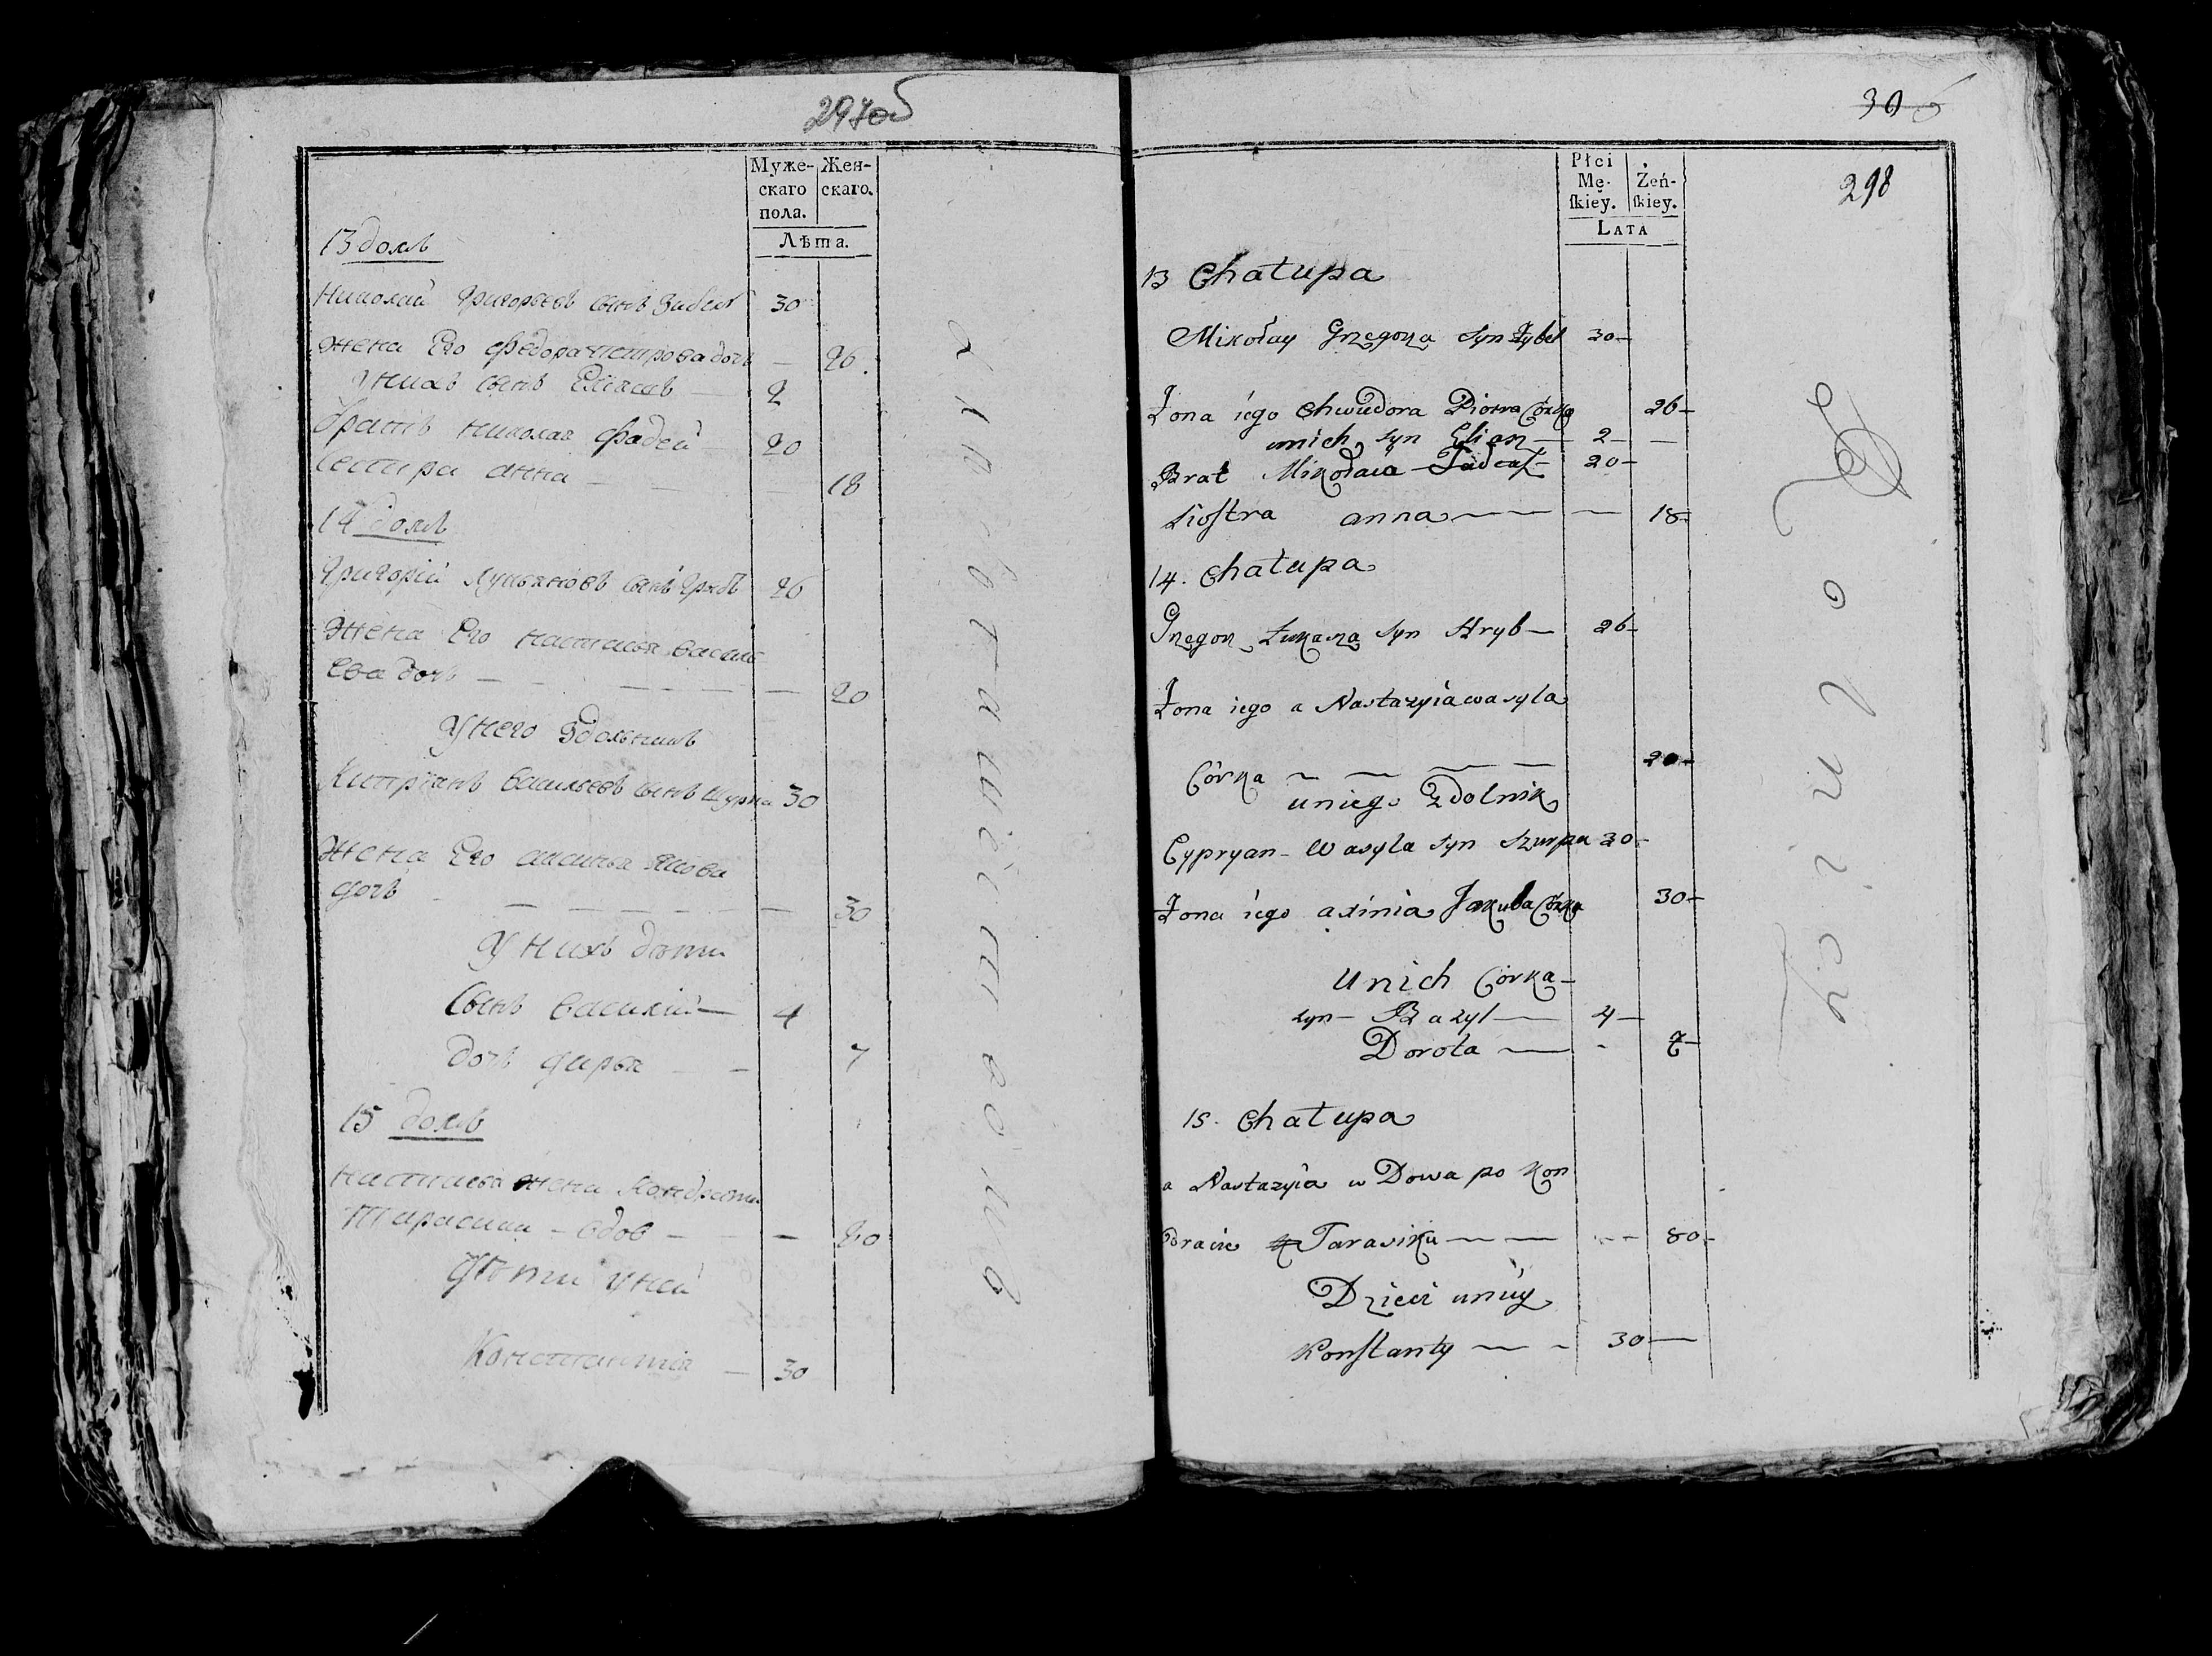 297об
Муже-
скаго
пола.
Жен-
скаго.
Лѣта.
13 домъ
Николай Григорьевъ сынъ Зибел 30
Жена Его Федора петрова дочь — 26
Унихъ сынъ Елиашъ — 2
братъ николая фадей — 20
Сестра анна — — — 18
14 домъ
Григорій Лукьяновъ сынъ Грыбъ 26
Жена Его настасья василь
ева дочь — — — — — — 20
Унего Здольникъ
Кипріанъ васильевъ сынъ шурпа 30
Жена Его аксинья якова
дочь — — — — — — 30
Унихъ дѣти
Сынъ василій — 4
дочь дарья — — 7
15 домъ
настасья жена Кондрата
Тарасика — вдов — — 80
Дѣти уней
Константія — 30
30
298
Płci
Mę-
ſkiey.
Żeń-
ſkiey.
LATA
13 Chałupa
Mikołay Grzegorza Syn Zybel 30 —
Żona iego Chwiedora Piotra Córka 26 —
unich syn Eliasz — 2 — —
Brat Mikołaia Tadeusz — 20 —
Siostra anna — — — 18 —
14. Chałupa
Grzegorz Łukasza Syn Hryb — 26 —
Żona iego a Nastazyia wasyla
Córka — — — — 20 —
uniego Zdolnik
Cypryan — Wasyla syn Szurpa 30 —
Żona iego axinia Jakuba Córka 30 —
Unich Córka —
syn — Bazyl — 4 —
Dorota — - 7 —
15. Chałupa
a Nastazyia w Dowa po Kon
dracie Tarasiku — — - - 80 —
Dzieci uniey
Konſtanty — — - 30 —